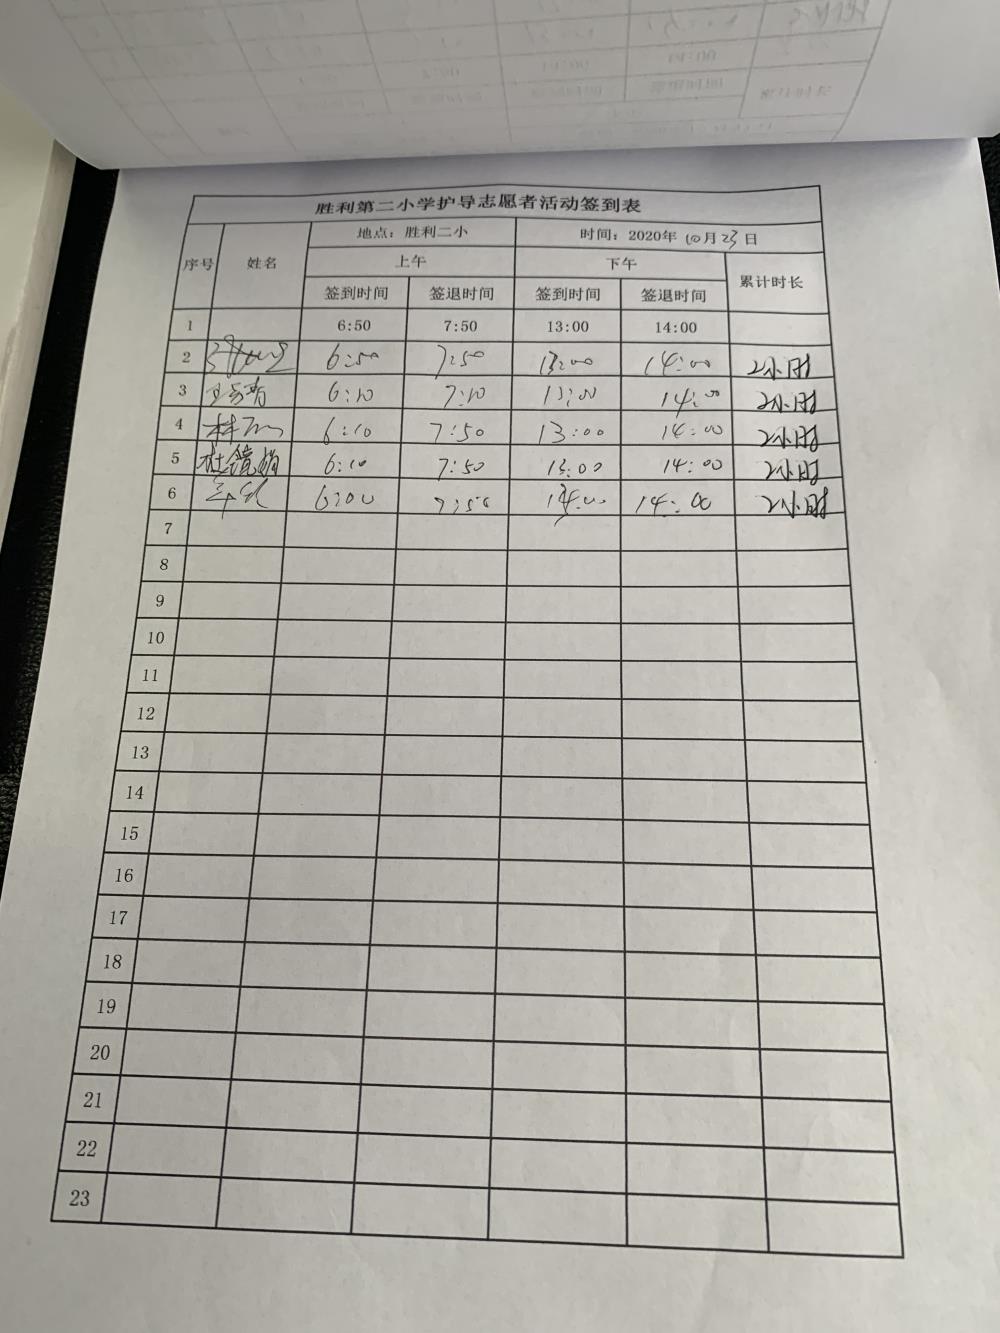 胜利第二小学护导志愿者活动签到表
序号 姓名 地点：胜利二小 时间：2020年10月23日
上午 下午 累计时长
签到时间 签退时间 签到时间 签退时间
1 6:50 7:50 13:00 14:00
2 6:50 7:50 13:00 14:00 2小时
3 6:10 7:10 13:00 14:00 2小时
4 林 6:10 7:50 13:00 14:00 2小时
5 杜镜娟 6:10 7:50 13:00 14:00 2小时
6 6:00 7:50 14:00 2小时
7
8
9
10
11
12
13
14
15
16
17
18
19
20
21
22
23